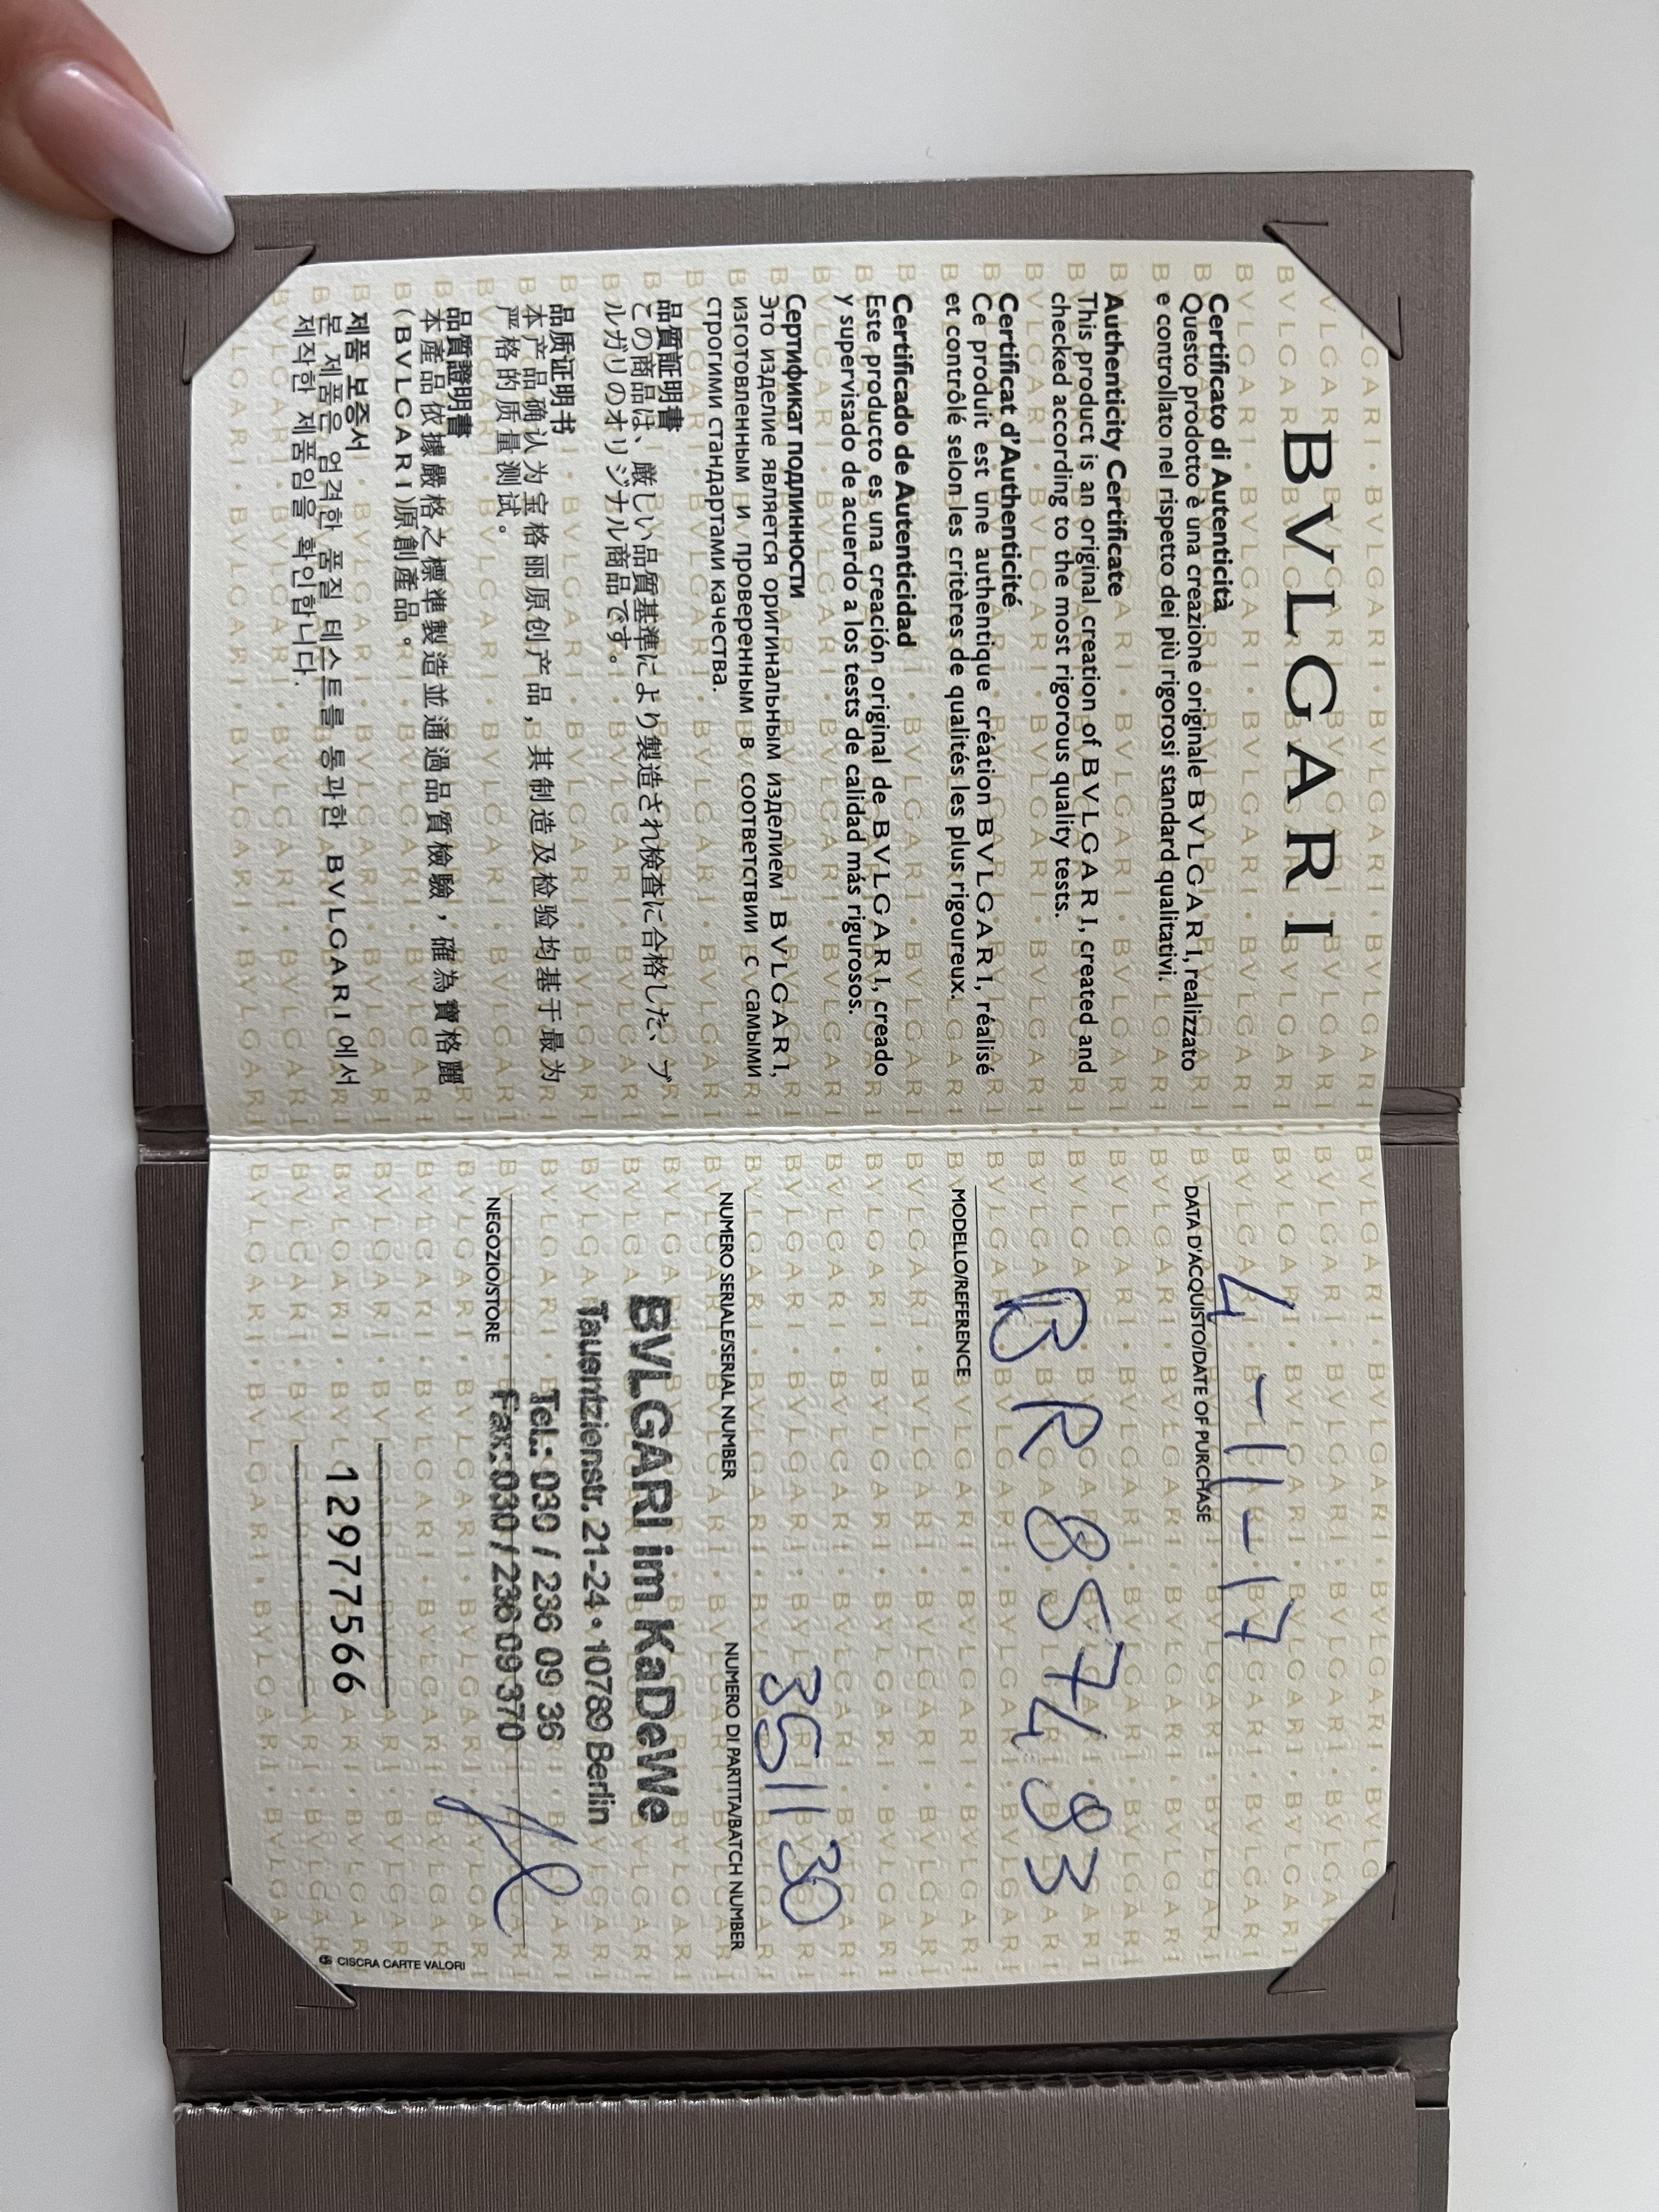 BVLGARI
Certificato di Autenticità
Questo prodotto è una creazione originale BVLGARI, realizzato
e controllato nel rispetto dei più rigorosi standard qualitativi.
Authenticity Certificate
This product is an original creation of BVLGARI, created and
checked according to the most rigorous quality tests.
Certificat d'Authenticité
Ce produit est une authentique création BVLGARI, réalisé
et contrôlé selon les critères de qualités les plus rigoureux.
Certificado de Autenticidad
Este producto es una creación original de BVLGARI, creado
y supervisado de acuerdo a los tests de calidad más rigurosos.
Сертификат подлинности
Это изделие является оригинальным изделием BVLGARI,
изготовленным и проверенным в соответствии с самыми
строгими стандартами качества.
品質証明書
この商品は、厳しい品質基準により製造され検査に合格した、ブ
ルガリのオリジナル商品です。
品质证明书
本产品确认为宝格丽原创产品,其制造及检验均基于最为
严格的质量测试。
品質證明書
本產品依據嚴格之標準製造並通過品質檢驗，確為寶格麗
(BVLGARI)原創產品。
제품 보증서
본 제품은 엄격한 품질 테스트를 통과한 BVLGARI 에서
제작한 제품임을 확인합니다.
4-11-17
DATA D'ACQUISTO/DATE OF PURCHASE
BR 857493
MODELLO/REFERENCE
351130
NUMERO SERIALE/SERIAL NUMBER NUMERO DI PARTITA/BATCH NUMBER
BVLGARI im KaDeWe
Tauentzienstr. 21-24 • 10789 Berlin
Tel.: 030 / 236 09 36
Fax: 030 / 236 09 370
NEGOZIO/STORE
12977566
CISCRA CARTE VALORI